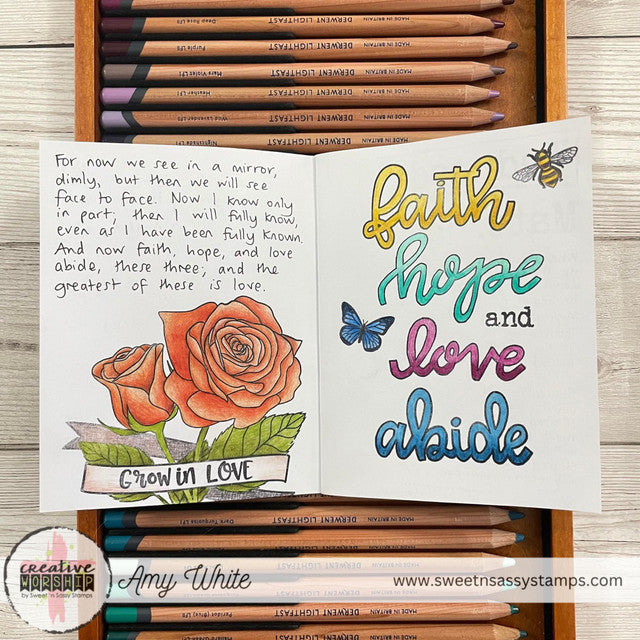 Deep Rose LF8
MADE IN BRITAIN DERWENT LIGHTFAST
Purple LF8
MADE IN BRITAIN DERWENT LIGHTFAST
Mars Violet LF1
MADE IN BRITAIN DERWENT LIGHTFAST
Heather LF1
MADE IN BRITAIN DERWENT LIGHTFAST
Wild Lavender LF1
MADE IN BRITAIN DERWENT LIGHTFAST
Nightshade LF1
MADE IN BRITAIN DERWENT LIGHTFAST
For now we see in a mirror,
dimly, but then we will see
face to face. Now I know only
in part; then I will fully know,
even as I have been fully known.
And now faith, hope, and love
abide, these three; and the
greatest of these is love.
GROW IN LOVE
faith
hope
and
love
abide
MADE IN BRITAIN DERWENT LIGHTFAST
Dark Turquoise LF1
MADE IN BRITAIN DERWENT LIGHTFAST
MADE IN BRITAIN DERWENT LIGHTFAST
MADE IN BRITAIN DERWENT LIGHTFAST
creative
WORSHIP
by Sweet 'n Sassy Stamps
Amy White
www.sweetnsassystamps.com